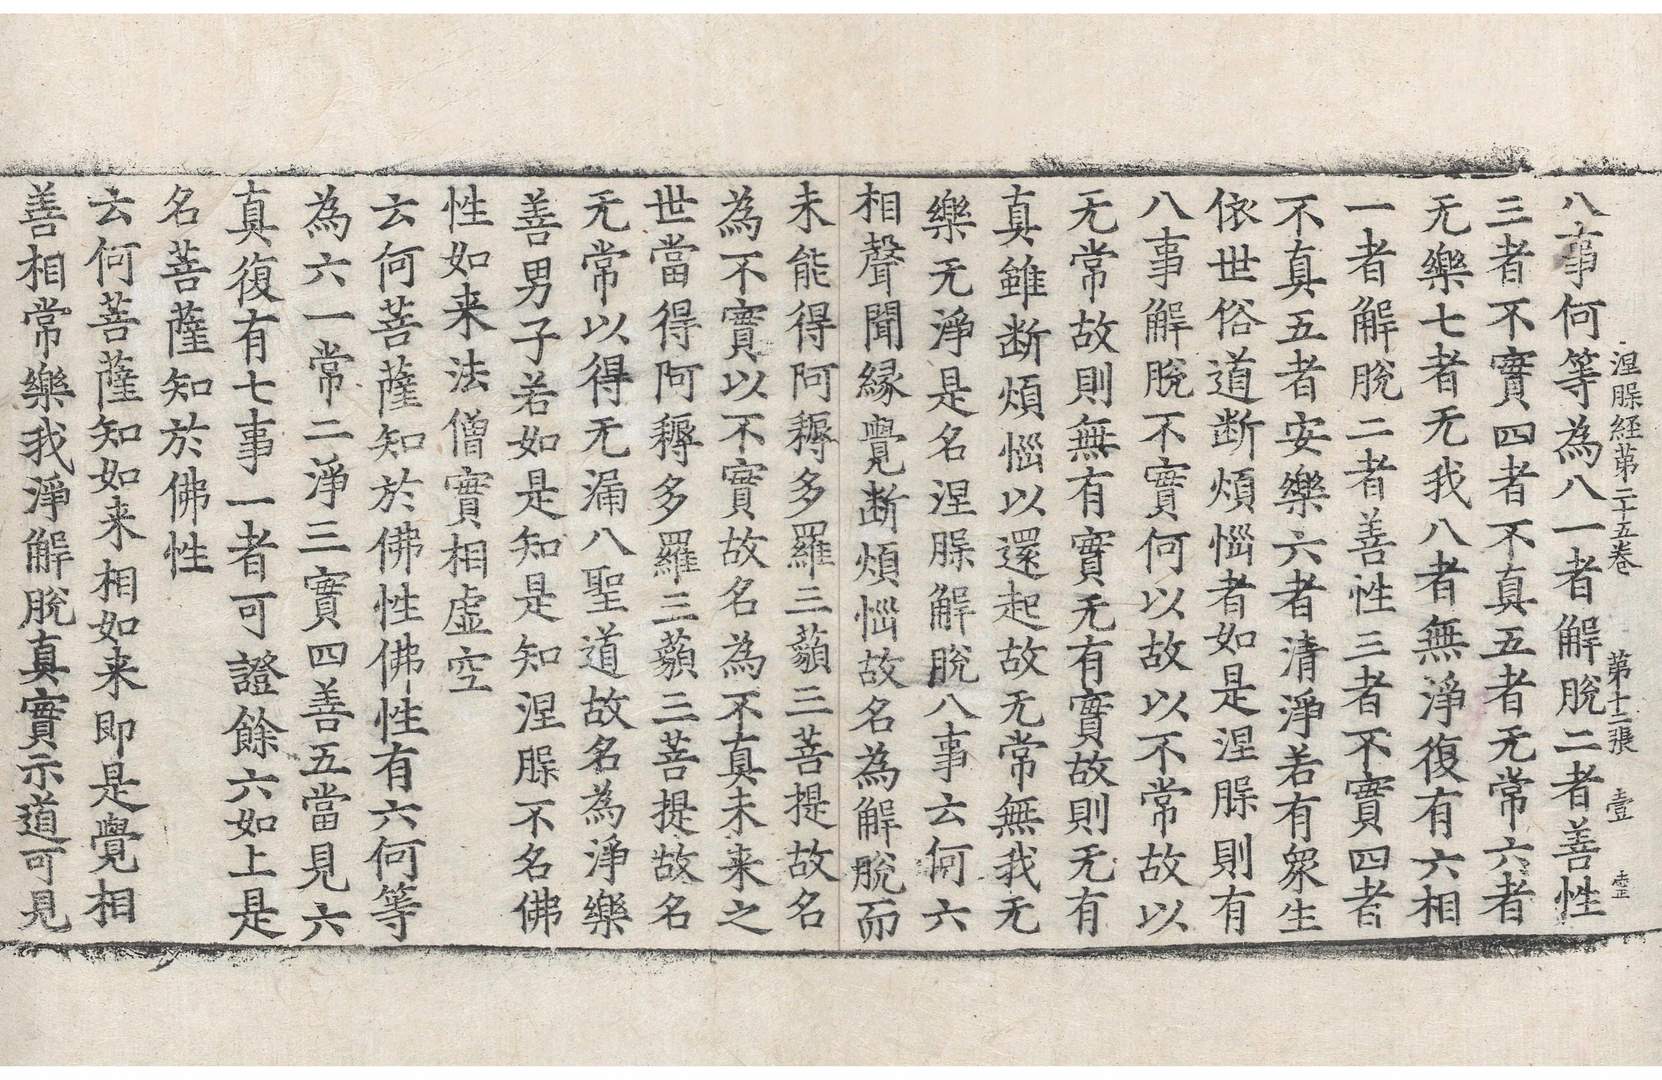 涅槃経苐二十五卷　苐十二張　壹　壹
八事何等為八一者解脫二者善性
三者不實四者不真五者无常六者
无樂七者无我八者無淨復有六相
一者解脫二者善性三者不實四者
不真五者安樂六者清淨若有衆生
依世俗道断煩惱者如是涅槃則有
八事解脫不實何以故以不常故以
无常故則無有實无有實故則无有
真雖断煩惱以還起故无常無我无
樂无淨是名涅槃解脫八事云何六
相聲聞縁覺断煩惱故名為解脫而
未能得阿耨多羅三藐三菩提故名
為不實以不實故名為不真未来之
世當得阿耨多羅三藐三菩提故名
无常以得无漏八聖道故名為淨樂
善男子若如是知是知涅槃不名佛
性如来法僧實相虛空
云何菩薩知於佛性佛性有六何等
為六一常二淨三實四善五當見六
真復有七事一者可證餘六如上是
名菩薩知於佛性
云何菩薩知如来相如来即是覺相
善相常樂我淨解脫真實示道可見